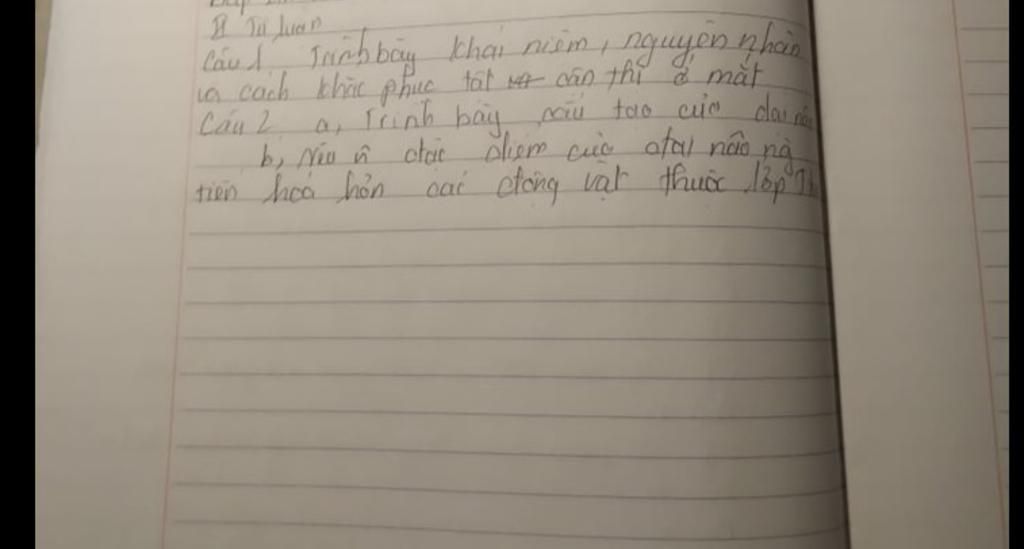 II Tự luận
Câu 1 Trình bày khái niệm, nguyên nhân
và cách khắc phục tật cận thị ở mắt
Câu 2 a, Trình bày cấu tạo của đại não
b, Nêu rõ đặc điểm của đại não
tiến hoá hơn các động vật thuộc lớp